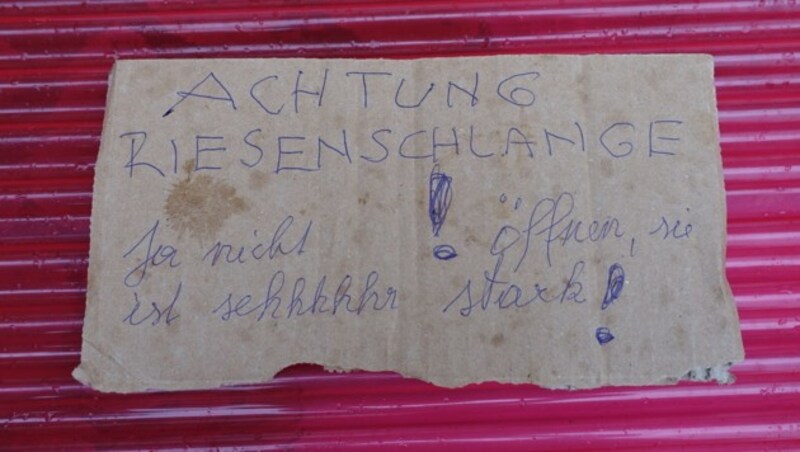 ACHTUNG
RIESENSCHLANGE
Ja nicht ! öffnen, sie
ist sehhhhhr stark!